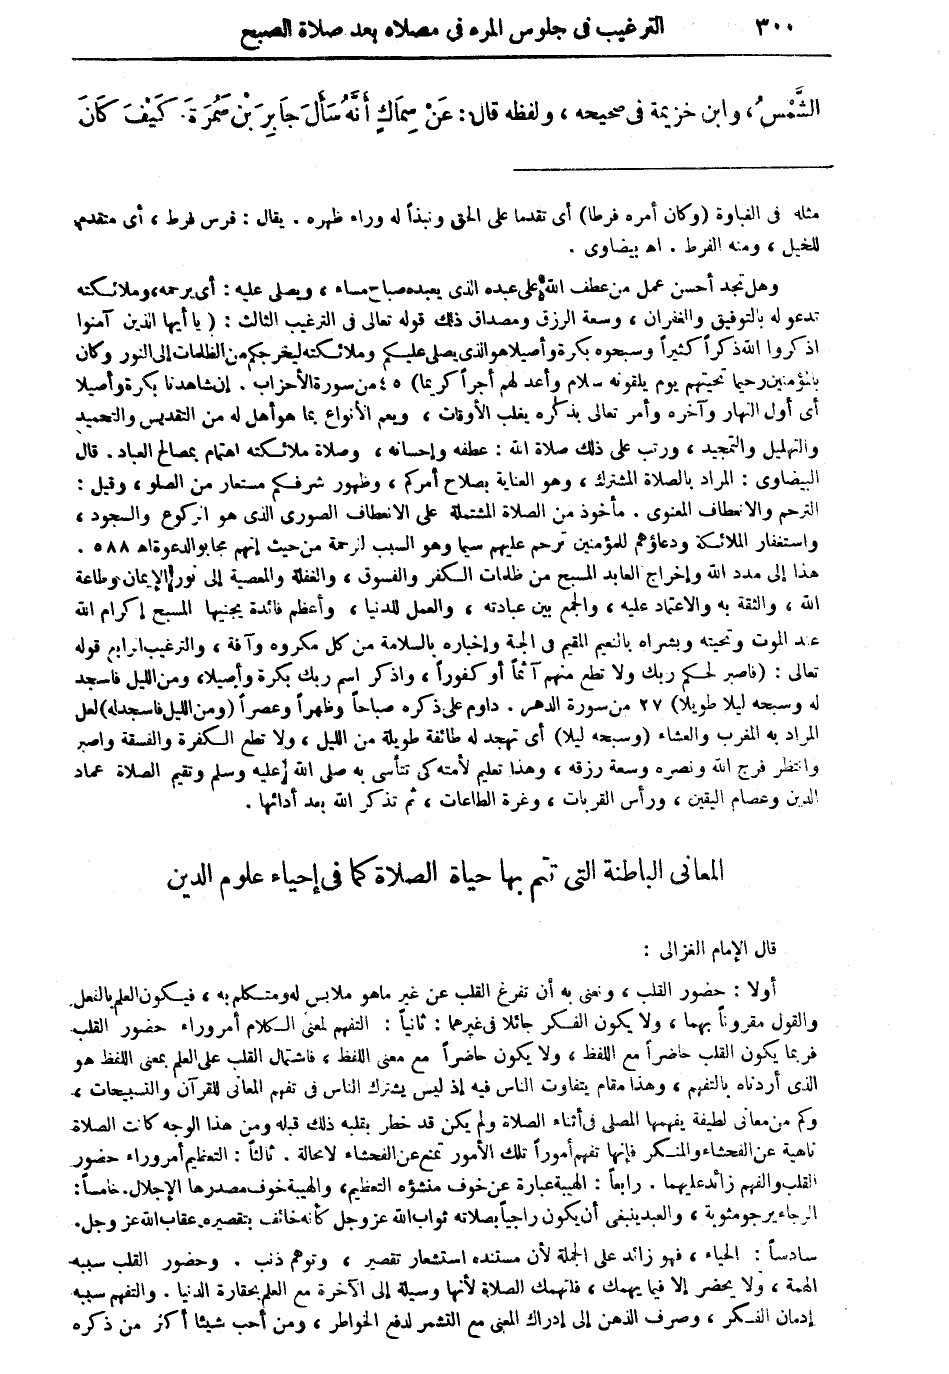 ٣٠٠ الترغيب فى جلوس المرء فى مصلاه بعد صلاة الصبح
الشَّمْسُ، وابن خزيمة فى صحيحه، ولفظه قال: عَنْ سِمَاكٍ أَنَّهُ سَأَلَ جَابِرَ بْنَ سَمُرَةَ. كَيْفَ كَانَ
مثله فى الغباوة (وكان أمره فرطا) أى تقدما على الحق ونبذاً له وراء ظهره . يقال : فرس فرط ، أى متقدم
للخيل ، ومنه الفرط . اه بيضاوى .
وهل تجد أحسن عمل من عطف الله على عبده الذى يعبده صباح مساء ، ويصلى عليه : أى يرحمه، وملائكته
تدعو له بالتوفيق والغفران ، وسعة الرزق ومصداق ذلك قوله تعالى فى الترغيب الثالث : (يا أيها الذين آمنوا
اذكروا الله ذكراً كثيراً وسبحوه بكرة وأصيلا هو الذى يصلى عليكم وملائكته ليخرجكم من الظلمات إلى النور وكان
بالمؤمنين رحيما تحيتهم يوم يلقونه سلام وأعد لهم أجراً كريما) ٤٥ من سورة الأحزاب . إن شاهدنا بكرة وأصيلا
أى أول النهار وآخره وأمر تعالى بذكره يغلب الأوقات ، ويعم الأنواع بما هو أهل له من التقديس والتحميد
والتهليل والتمجيد ، ورتب على ذلك صلاة الله : عطفه وإحسانه ، وصلاة ملائكته اهتمام بمصالح العباد. قال
البيضاوى : المراد بالصلاة المشترك ، وهو العناية بصلاح أمركم ، وظهور شرفكم مستعار من الصلو ، وقيل :
الترحم والانعطاف المعنوى . مأخوذ من الصلاة المشتملة على الانعطاف الصورى الذى هو الركوع والسجود ،
واستغفار الملائكة ودعاؤهم للمؤمنين ترحم عليهم سيما وهو السبب لرحمة من حيث إنهم مجابو الدعوة اه ٥٨٨ .
هذا إلى مدد الله وإخراج العابد المسبح من ظلمات الكفر والفسوق ، والغفلة والمعصية إلى نور الإيمان وطاعة
الله ، والثقة به والاعتماد عليه ، والجمع بين عبادته ، والعمل للدنيا ، وأعظم فائدة يجنيها المسبح إكرام الله
عند الموت وتحيته وبشراه بالنعيم المقيم فى الجنة وإخباره بالسلامة من كل مكروه وآفة ، والترغيب الرابع قوله
تعالى : (فاصبر لحكم ربك ولا تطع منهم آثماً أو كفوراً ، واذكر اسم ربك بكرة وأصيلا، ومن الليل فاسجد
له وسبحه ليلا طويلا) ٢٧ من سورة الدهر. داوم على ذكره صباحاً وظهراً وعصراً (ومن الليل فاسجد له) لعل
المراد به المغرب والعشاء (وسبحه ليلا) أى تهجد له طائفة طويلة من الليل ، ولا تطع الكفرة والفسقة واصبر
وانتظر فرج الله ونصره وسعة رزقه ، وهذا تعليم لأمته كى تتأسى به صلى الله عليه وسلم وتقيم الصلاة عماد
الدين وعصام اليقين ، ورأس القربات ، وغرة الطاعات ، ثم تذكر الله بعد أدائها .
المعانى الباطنة التى تتم بها حياة الصلاة كما فى إحياء علوم الدين
قال الإمام الغزالى :
أولا : حضور القلب ، ونعنى به أن تفرغ القلب عن غير ماهو ملابس له ومتكلم به ، فيكون العلم بالفعل
والقول مقروناً بهما ، ولا يكون الفكر جائلا فى غيرهما : ثانياً : التفهم لمعنى الكلام أمر وراء حضور القلب
فربما يكون القلب حاضراً مع اللفظ ، ولا يكون حاضراً مع معنى اللفظ ، فاشتمال القلب على العلم بمعنى اللفظ هو
الذى أردناه بالتفهم ، وهذا مقام يتفاوت الناس فيه إذ ليس يشترك الناس فى تفهم المعانى للقرآن والتسبيحات ،
وكم من معانى لطيفة يفهمها المصلى فى أثناء الصلاة ولم يكن قد خطر بقلبه ذلك قبله ومن هذا الوجه كانت الصلاة
ناهية عن الفحشاء والمنكر فإنها تفهم أموراً تلك الأمور تمنع عن الفحشاء لا محالة . ثالثاً : التعظيم أمر وراء حضور
القلب والفهم زائد عليهما . رابعاً : الهيبة عبارة عن خوف منشؤه التعظيم، والهيبة خوف مصدرها الإجلال. خامساً:
الرجاء يرجو مثوبة ، والعبد ينبغى أن يكون راجياً بصلاته ثواب الله عز وجل كأنه خائف بتقصيره عقاب الله عز وجل.
سادساً : الحياء ، فهو زائد على الجملة لأن مستنده استشعار تقصير ، وتوهم ذنب . وحضور القلب سببه
الهمة ، ولا يحضر إلا فيما يهمك ، فاتهمك الصلاة لأنها وسيلة إلى الآخرة مع العلم بحقارة الدنيا . والتفهم سببه
إدمان الفكر ، وصرف الذهن إلى إدراك المعنى مع التشمر لدفع الخواطر ، ومن أحب شيئا أكثر من ذكره